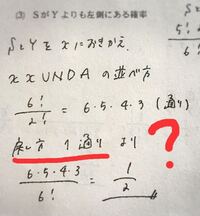 (3) SがYよりも左側にある確率
SとYをxにおきかえ、
xxUNDAの並べ方
6!/2! = 6・5・4・3 (通り)
戻し方 1通り より
?
6・5・4・3/6! = 1/2